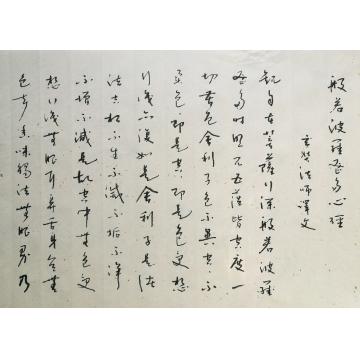 般若波羅蜜多心經
玄奘法師譯文
觀自在菩薩行深般若波羅
蜜多時照見五蘊皆空度一
切苦厄舍利子色不異空不
異色即是空即是色受想
行識亦復如是舍利子是諸
法空相不生不滅不垢不淨
不增不減是故空中無色受
想行識無眼耳鼻舌身意無
色聲香味觸法無眼界乃